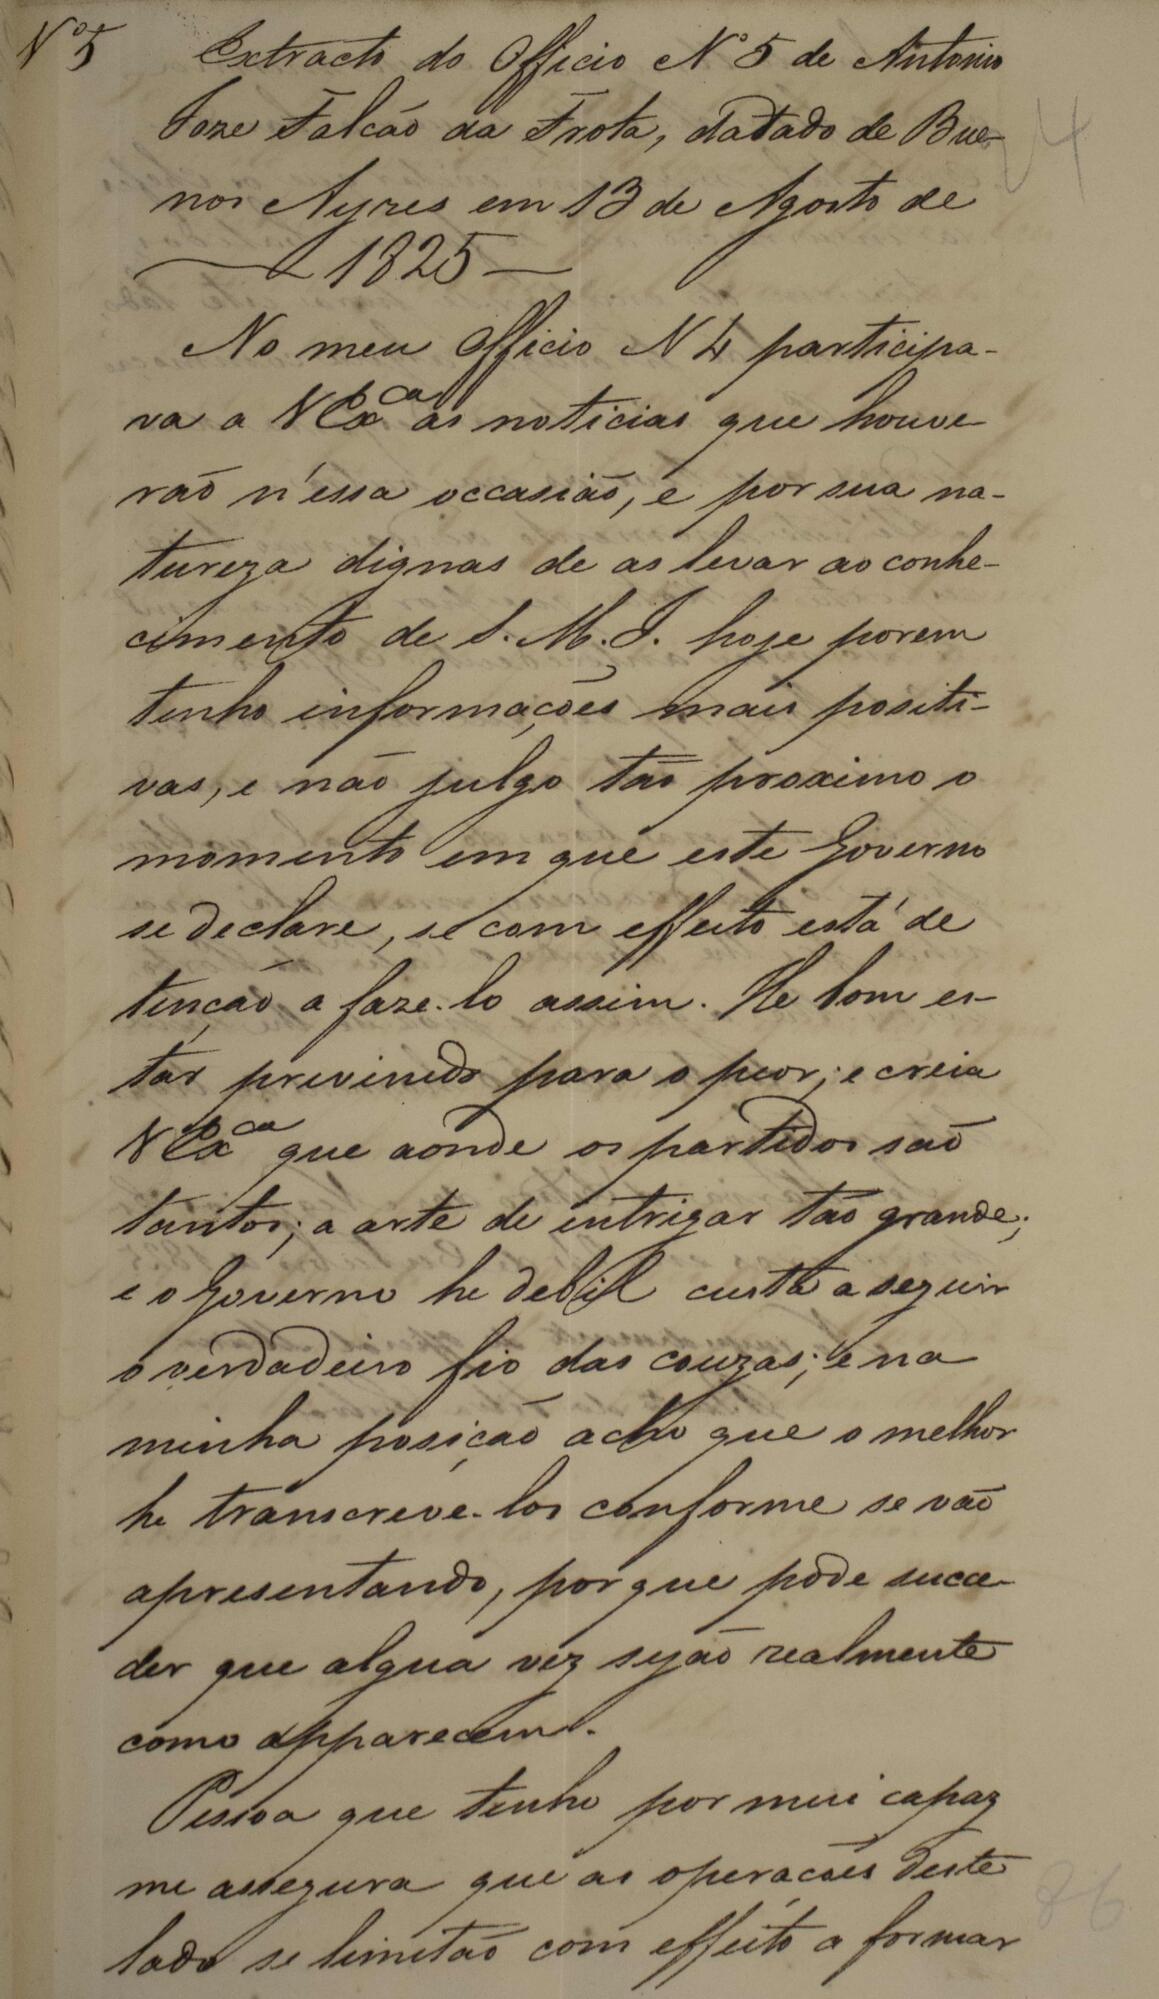 Nº 5
Extracto do Officio Nº 5 de Antonio
Joze Falcão da Frota, datado de Bue-
nos Ayres em 13 de Agosto de
1825
No meu Officio N 4 participa-
va a V Exca as noticias que houve-
rão n'essa occasião, e por sua na-
tureza dignas de as levar ao conhe-
cimento de S. M. I. hoje porem
tenho informações mais positi-
vas, e não julgo tão proximo o
momento em que este Governo
se declare, se com effeito está de
tenção a faze-lo assim. He bom es-
tar prevenido para o peor; e creia
V Exca que aonde os partidos são
tantos; a arte de intrigar tão grande;
e o Governo he debil custa a seguir
o verdadeiro fio das couzas; e na
minha posição acho que o melhor
he transcreve-los conforme se vão
apresentando, porque póde succe-
der que algua vez sejão realmente
como apparecem.
Pessoa que tenho por mui capaz
me assegura que as operacões deste
lado se limitão com effeito a formar
24
86